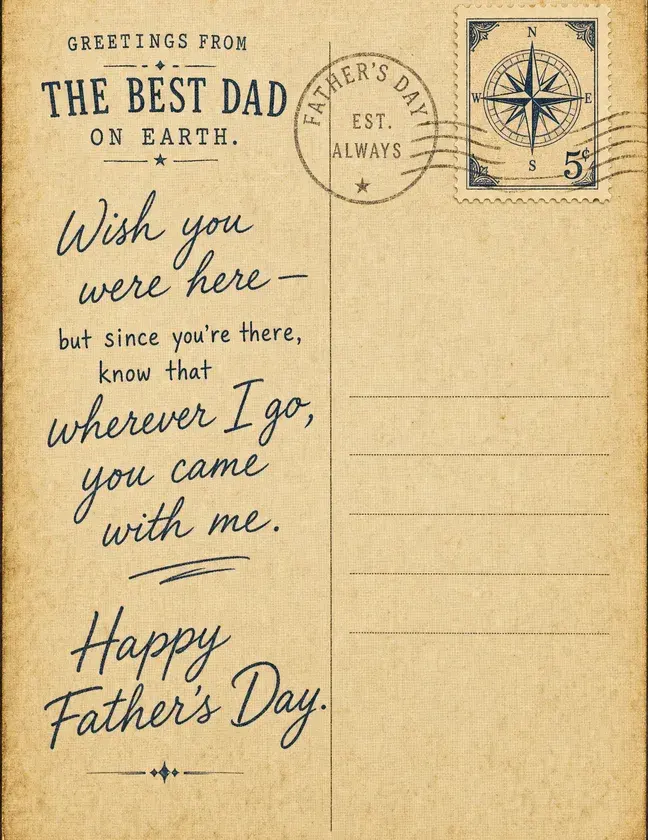 GREETINGS FROM
THE BEST DAD
ON EARTH.
Wish you
were here—
but since you're there,
know that
wherever I go,
you came
with me.
Happy
Father's Day.
FATHER'S DAY
EST.
ALWAYS
N
W E
S
5¢